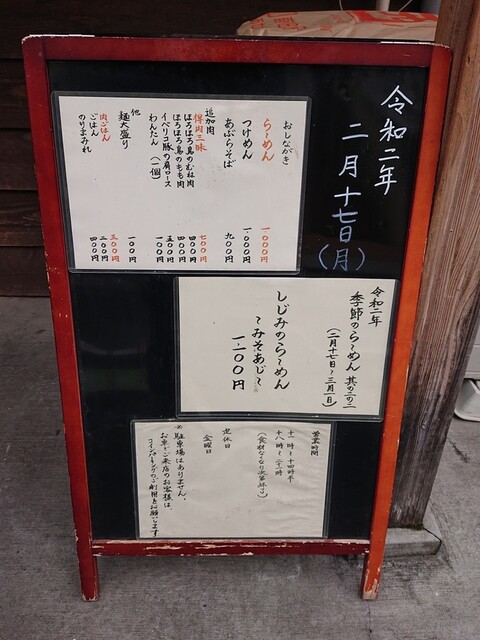 令和二年
二月十七日(月)
おしながき
らーめん 一、〇〇〇円
つけめん 一、〇〇〇円
あぶらそば 九〇〇円
追加肉
得肉三昧 七〇〇円
ほろほろ鳥のむね肉 四〇〇円
ほろほろ鳥のもも肉 四〇〇円
イベリコ豚の肩ロース 五〇〇円
わんたん(一個) 一〇〇円
他
麺大盛り 一〇〇円
肉ごはん 三〇〇円
ごはん 二〇〇円
のりまみれ 四〇〇円
令和二年
季節のらーめん 其の二の二
(二月十七日〜三月一日)
しじみのらーめん
〜みそあじ〜
一、二〇〇円
営業時間
十一時〜十四時半
十八時〜二十一時
(食材なくなり次第終了)
定休日
金曜日
※駐車場はありません。
お車でご来店のお客様は、
コインパーキングのご利用をお願いします